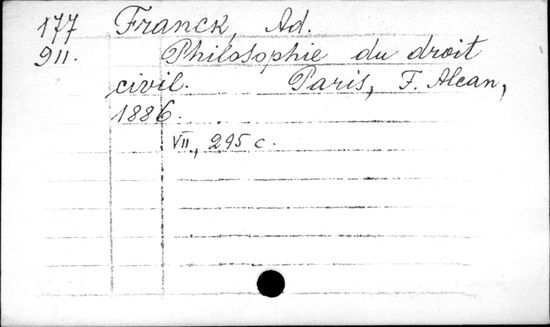 177 Franck, Ad.
911. Philosophie du droit
civil. Paris, F. Alcan,
1886.
VII, 295 c.